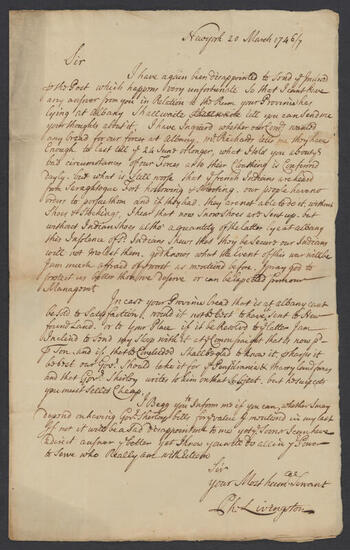 Newyork 20 March 1746/7
Sir
I have again been disappointed to Send
to the Post which happens very unfortunate. So that I cant have
any answer from you in Relation to the Rum your Province has
lying at Albany I shall write till you can Send me
your thoughts about it. I have Inquird whether our would
any bread for our forces at Albany, Mr tells me they have
Enough to last till ye 24 Next. what I told you about ye
bad circumstances of our forces as to their Cloathing is Confirmd
dayly. but what is Still worse that ye french Indians are heard
from Saraghtoque fort hollowing & our people have no
orders to pursue them and if they had, they are not able to do it, without
Shoes & Stockings, I hear that now Snow Shoes are Sent up, but
without Indian Shoes altho a quantity of the latter ly at albany
this Insolence of ye Indians Shews that they be Secure our Indians
will not molest them, god knows what the Event of this war will be
I am much afraid of worst as mentiond before. I pray god to
protect us better than we deserve or can be Expected from our
Managemt.
In case your Province bread that is at albany cant
be Sold to Satisfaction, would it not be best to have Sent to New
found Land. or to your Place if it be Resolvd ye latter I am
Inclind to Send my Sloop with it at ye Common fraight that is now pd
ton and if that be Concluded Shall be glad to know it,
be best our Govr. Should take it for ye
and that Govr. Shirley writes to him on that Subject. but he Expects
you must Sell it Cheap.
I Begg you to Inform me if you can, whether I may
depend on having Govr. Shirley bills for ye value I mentiond in my last
If not it will be a Sad disappointmt to me
a direct answer ye better yet I hope you will do all in ye Power
to Serve who Really am with Esteem
Sir
your Most hum.ble Servant
Ph: Livingston